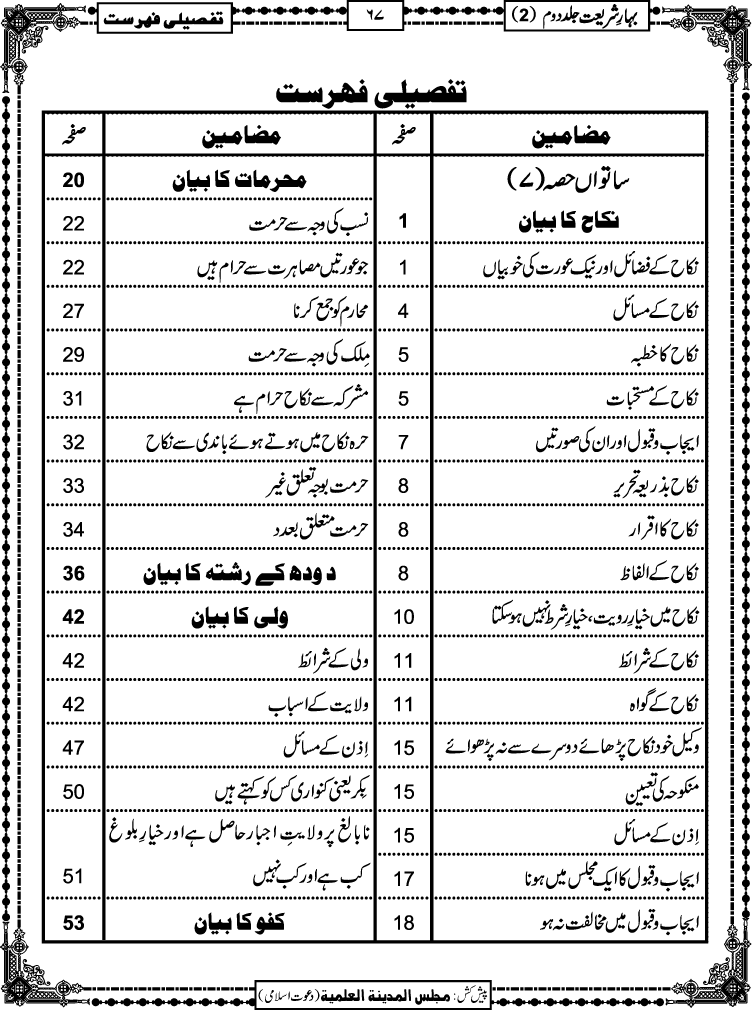 بہارِ شریعت جلد دوم (2)
٦٧
تفصیلی فہرست
تفصیلی فہرست
مضامین صفحہ
ساتواں حصہ (۷)
نکاح کا بیان 1
نکاح کے فضائل اور نیک عورت کی خوبیاں 1
نکاح کے مسائل 4
نکاح کا خطبہ 5
نکاح کے مستحبات 5
ایجاب وقبول اور ان کی صورتیں 7
نکاح بذریعہ تحریر 8
نکاح کا اقرار 8
نکاح کے الفاظ 8
نکاح میں خیارِ رویت، خیارِ شرط نہیں ہوسکتا 10
نکاح کے شرائط 11
نکاح کے گواہ 11
وکیل خود نکاح پڑھائے دوسرے سے نہ پڑھوائے 15
منکوحہ کی تعیین 15
اِذن کے مسائل 15
ایجاب وقبول کا ایک مجلس میں ہونا 17
ایجاب وقبول میں مخالفت نہ ہو 18
مضامین صفحہ
محرمات کا بیان 20
نسب کی وجہ سے حرمت 22
جو عورتیں مصاہرت سے حرام ہیں 22
محارم کو جمع کرنا 27
مِلک کی وجہ سے حرمت 29
مشرکہ سے نکاح حرام ہے 31
حرہ نکاح میں ہوتے ہوئے باندی سے نکاح 32
حرمت بوجہ تعلق غیر 33
حرمت متعلق بعدد 34
دودھ کے رشتہ کا بیان 36
ولی کا بیان 42
ولی کے شرائط 42
ولایت کے اسباب 42
اِذن کے مسائل 47
بِکر یعنی کنواری کس کو کہتے ہیں 50
نابالغ پر ولایتِ اجبار حاصل ہے اور خیارِ بلوغ
کب ہے اور کب نہیں 51
کفو کا بیان 53
پیش کش: مجلس المدینة العلمیة (دعوت اسلامی)